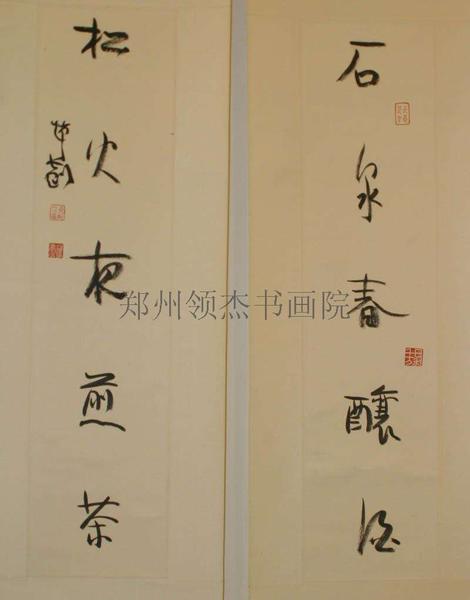 石泉春釀酒
松火夜煎茶
郑州领杰书画院